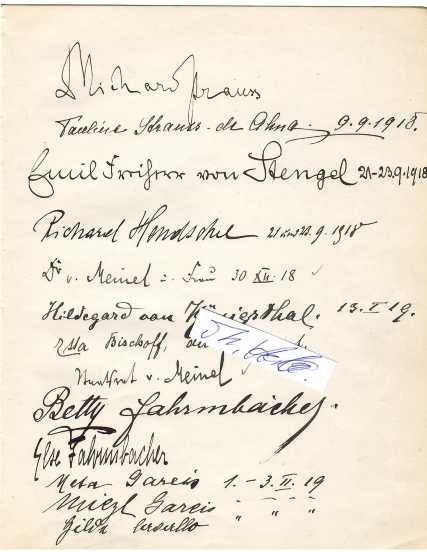 Richard Strauss
Pauline Strauss-de Ahna 9.9.1918.
Emil Freiherr von Stengel 21-23.9.1918
Richard Hendschel 21 und 22.9.1918
Dr v. Meinel u. Frau 30 XII. 18
Hildegard von 13. I 19.
Bischoff,
v. Meinel
Betty Fahrmbacher.
Else Fahrmbacher
Meta Gareis 1. - 3. II. 19
Miezl Gareis " " "
Gilda